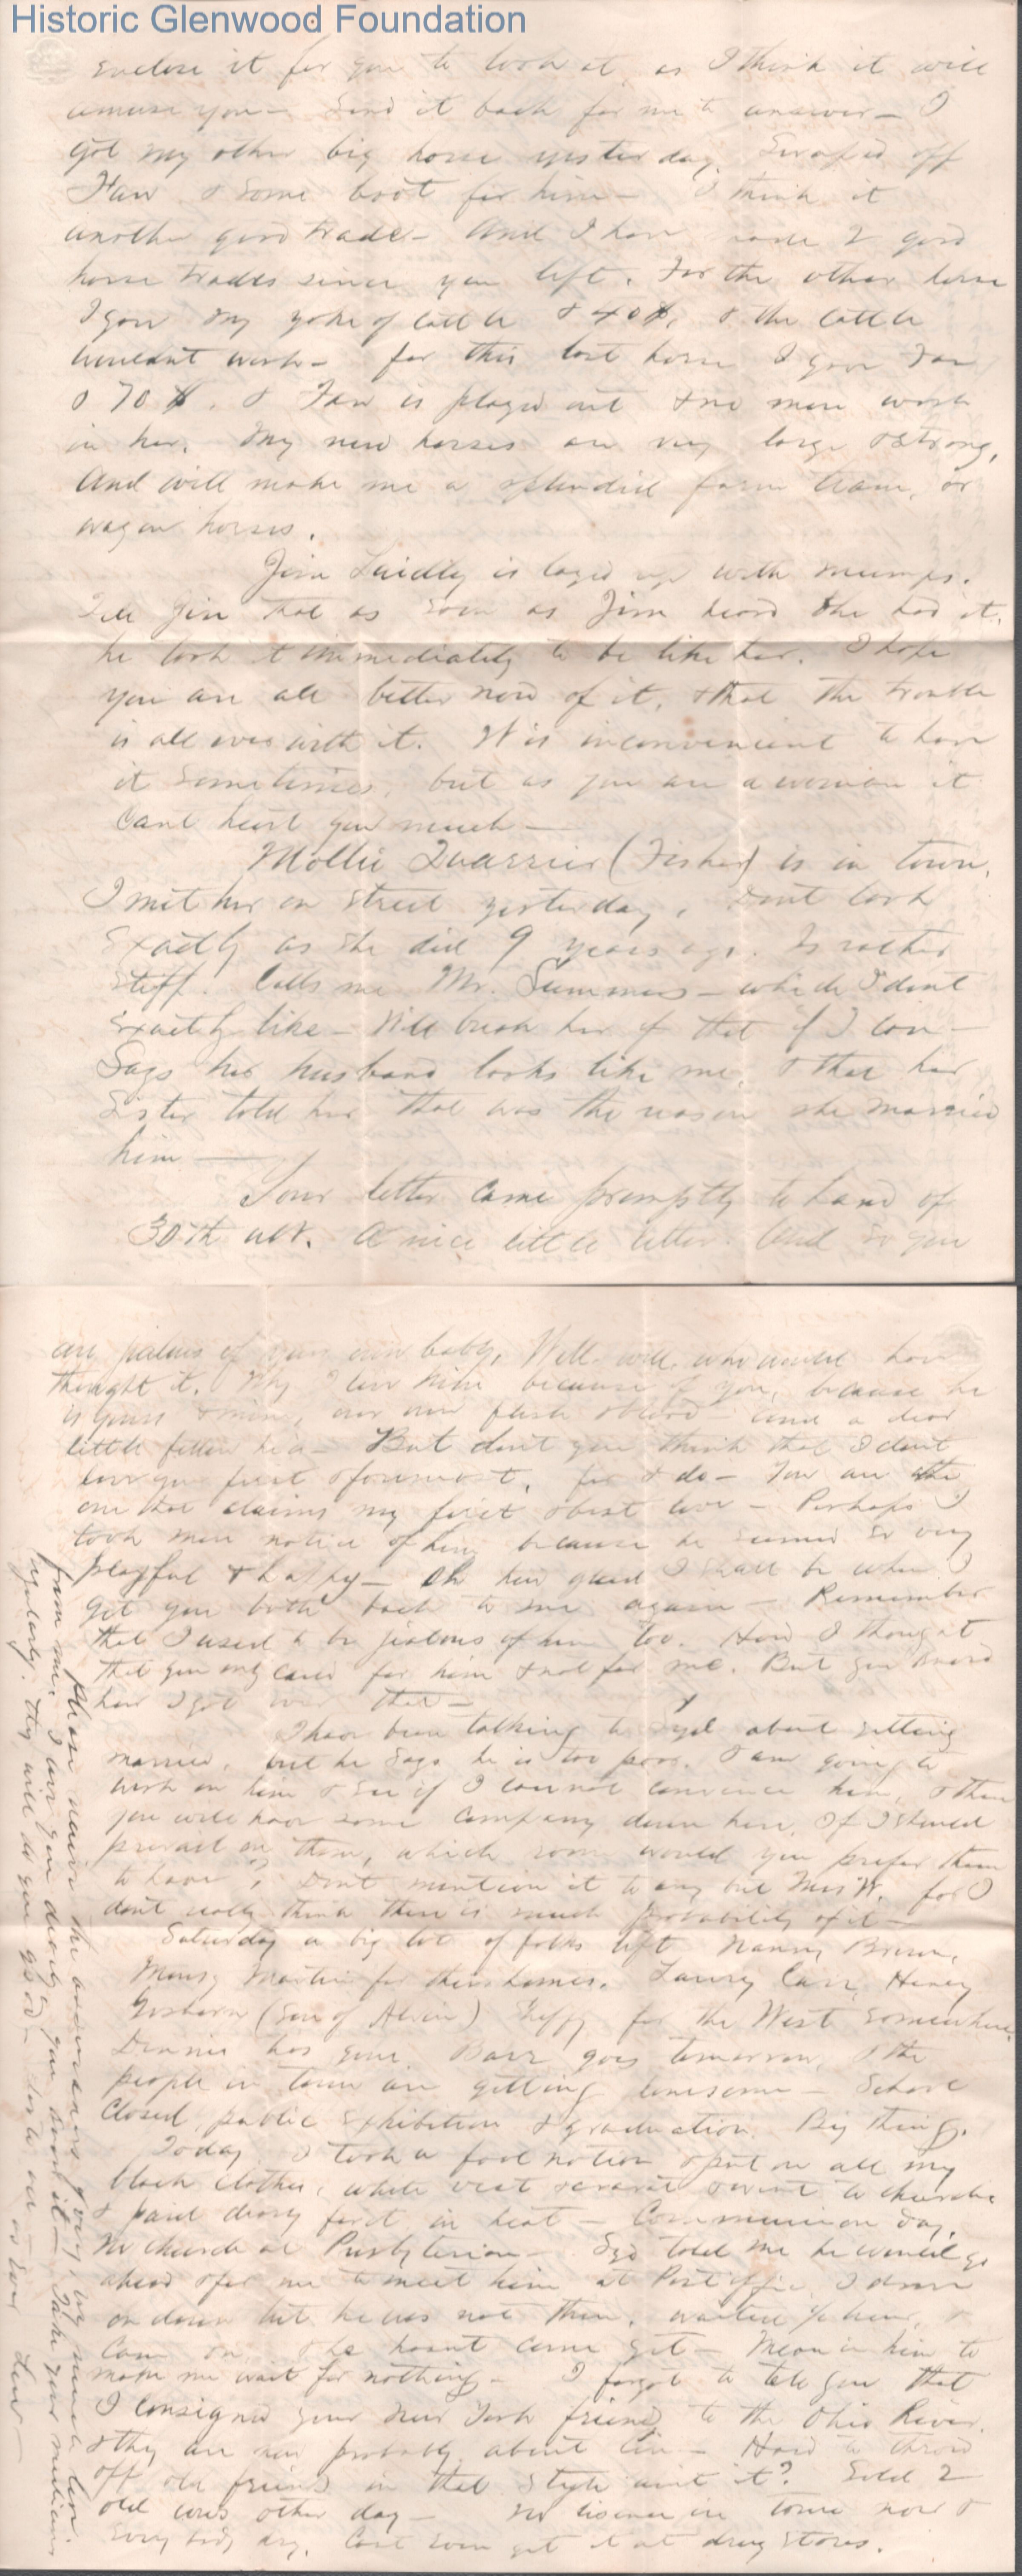 Historic Glenwood Foundation
enclose it for you to look at, as I think it will
amuse you - Send it back for me to answer - I
got my other big horse yesterday. Swaped off
Fan & some boot for him - I think it
another good trade - And I have made 2 good
horse trades since you left. For the other horse
I gave my yoke of cattle & 40$, & the cattle
wouldnt work - for this last horse I gave Fan
& 70$. & Fan is played out & no more work
in her. My new horses are very large & strong,
And will make me a splendid farm team, or
wagon horses.
Jim Laidley is layed up with mumps.
Tell Jin that as soon as Jim heard she had it,
he took it immediately to be like her. I hope
you are all better now of it, & that the trouble
is all over with it. It is inconvenient to have
it sometimes, but as you are a woman it
cant hurt you much -
Mollie Quarrier (Fisher) is in town.
I met her on street yesterday, dont look
Exactly as she did 9 years ago. Is rather
stiff. Calls me Mr. Summers - which I dont
exactly like - Will break her of that if I can -
Says her husband looks like me, & that her
Sister told her that was the reason she married
him -
Your letter came promptly to hand of
30th ult. A nice little letter. And so you
are jealous of your own baby. Well. well. who would have
thought it. Why I love him because of you, because he
is yours & mine, our own flesh & blood - and a dear
little fellow he is - But dont you think that I dont
love you first & foremost, for I do - You are the
one that claims my first & best love - Perhaps I
took more notice of him because he seemed so very
playful & happy - Oh how glad I shall be when I
get you both back to me again - Remember
that I used to be jealous of him too. How I thought
that you only cared for him & not for me. But you know
how I got over that -
I have been talking to Syd about getting
married, but he says he is too poor. I am going to
work on him & see if I can not convince him, & then
you will have some company down here. If I should
prevail on them, which room would you prefer them
to have? Dont mention it to any but Mrs W. for I
dont really think there is much probability of it -
Saturday a big lot of folks left Nanny Brown,
Martin for their homes. Laury Carr, Henry
(Son of Alvin) for the West somewhere
has gone. Barr goes tomorrow, & the
people in town are getting lonesome - School
Closed, public Exhibition & graduation. Big thing.
Today I took a fool notion & put on all my
black clothes, white vest & cravat & went to church
& paid dearly for it in heat - Communion day.
No church at Presbyterian - Syd told me he would go
ahead & for me to meet him at Post office, I drove
on down but he was not there, waited ½ hour, &
came on & he hasnt come yet - Mean in him to
make me wait for nothing - I forgot to tell you that
I consigned your New York friend to the Ohio River.
& they are now probably about Cin - Hard to throw
off old friends in that style aint it? Sold 2
old cows other day - No in town now &
Every body dry. Cant even get it at drug stores.
Please receive the assurances of very, very much love
from me. I love you dearly & you know it - Take your medicine
regularly. They will do you good - Love to all - as Ever Lew -